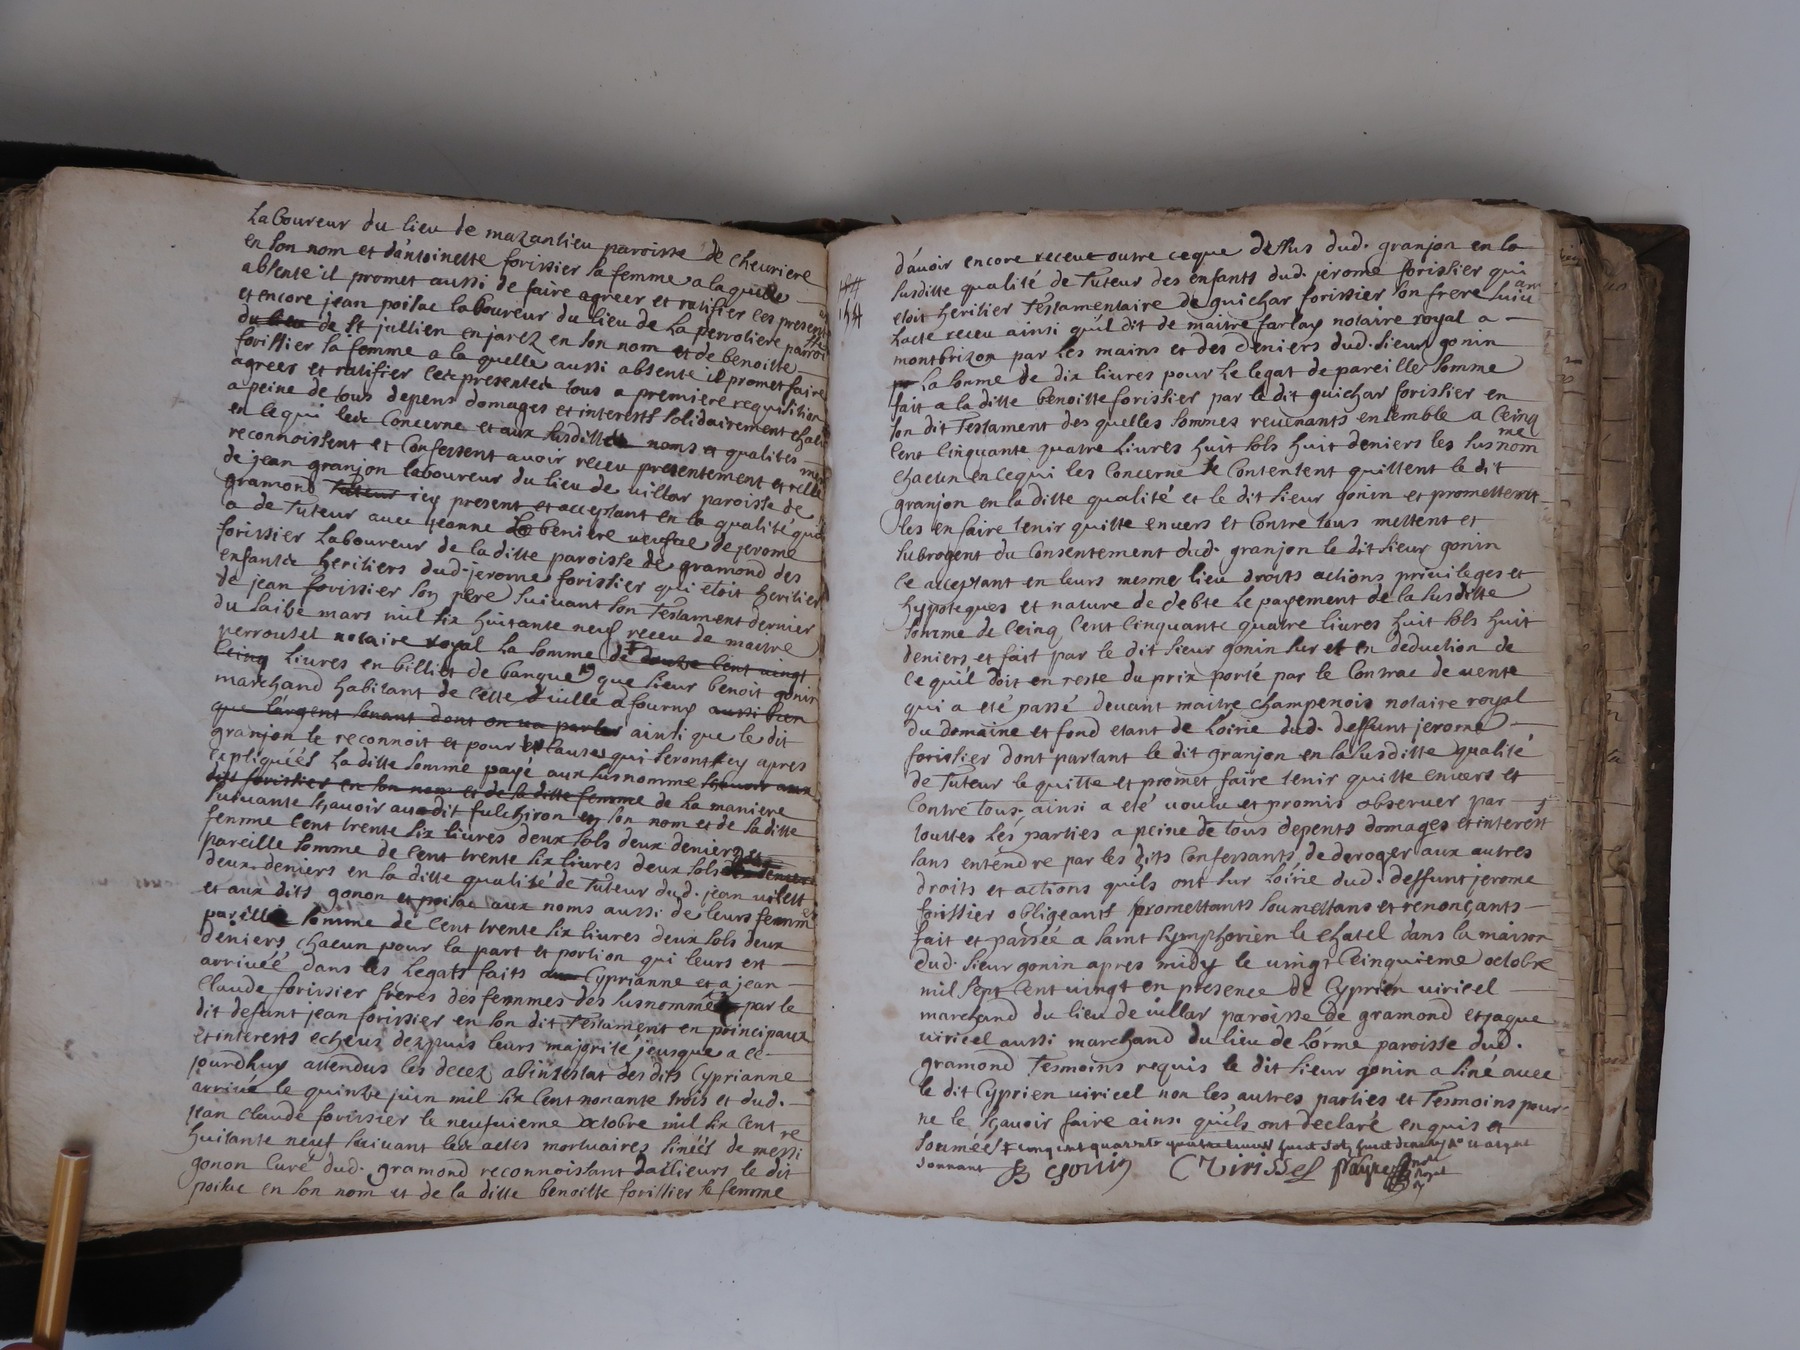 laboureur du lieu de mazanlieu paroisse de cheuriere
en son nom et dantoinette forissier sa femme a laquelle
absente il promet aussi de faire agreer et ratifier ces presentes
et encore jean poisac laboureur du lieu de la perroliere paroisse
du lieu de st jullien enjarez en son nom et de benoitte
forissier sa femme a la quelle aussi absente il promet faire
agreer et ratifier les presentes tous a premiere requisition
a peine de tous depens domages et interests solidairement chacun
en ce qui les concerne et aux susdittes noms et qualités
reconnoissent et confessent auoir receu presentement et relle
de jean granjon laboureur du lieu de uillar paroisse de
gramond tuteur icy present et acceptant en la qualité quil
a de tuteur auec jeanne beniere ueufue de jerome
forissier laboureur de la ditte paroisse de gramond des
enfants heritiers dud. jerome forissier qui etoit heritier
de jean forissier son pere suiuant son testament dernier
du saize mars mil six huitante neuf receu de maitre
perroutet notaire royal la somme de douze cent uingt
cinq liures en billiet de banque que sieur benoit gonin
marchand habitant de cette uille a fourny aussi bien
que largent sonant dont on ua parler ainsi que le dit
granjon le reconnoit et pour causes qui seront icy apres
expliquéés la ditte somme payé aux susnomme
dit forissier en son nom et de la ditte femme de la maniere
suiuante scauoir au dit fulchiron en son nom et de sa ditte
femme cent trente six liures deux sols deux deniers
pareille somme de cent trente six liures deux sols
deux deniers en la ditte qualité de tuteur dud. jean
et aux dits gonon et poisac aux noms aussi de leurs femmes
pareille somme de cent trente six liures deux sols deux
deniers chacun pour la part et portion qui leurs est
arriuéé dans les legats faits a Cyprianne et a jean
claude forissier freres des femmes des susnommés par le
dit defunt jean forissier en son dit testament en principaux
et interests echeus dezpuis leurs majorité jeusque a ce
jourdhuy attendus les decez abintestat des dits Cyprianne
arriué le quinze juin mil six cent nonante trois et dud.
jean claude forissier le neufuieme octobre mil six cent
huitante neuf suiuant les actes mortuaires sinéés de messire
gonon curé dud. gramond reconnoissant dailleurs le dit
poisac en son nom et de la ditte benoitte forissier sa femme
154
dauoir encore receut outre ceque dessus dud. granjon en la
susditte qualité de tuteur des enfants dud. jerome forissier qui
etoit heritier testamentaire de guichar forissier son frere suiuant
lacte receu ainsi quil dit de maitre farlay notaire royal a
montbrizon par les mains et des deniers dud. sieur gonin
la somme de dix liures pour le legat de pareille somme
fait a la ditte benoitte forissier par le dit guichar forissier en
son dit testament des quelles sommes reuenants ensemble a cinq
cent cinquante quatre liures huit sols huit deniers les susnommé
chacun en cequi les concerne se contentent quittent le dit
granjon en la ditte qualité et le dit sieur gonin et promettent
les en faire tenir quitte enuers et contre tous mettent et
subrogent du consentement dud. granjon le dit sieur gonin
ce acceptant en leurs mesme lieu droits actions priuileges et
hypoteques et nature de debte le payement de la susditte
somme de cinq cent cinquante quatre liures huit sols huit
deniers et fait par le dit sieur gonin sur et en deduction de
ce quil doit en reste du prix porté par le contrac de uente
qui a eté passé deuant maitre champenois notaire royal
du domaine et fond etant de loirie dud. deffunt jerome
forissier dont partant le dit granjon en la susditte qualité
de tuteur le quitte et promet faire tenir quitte enuers et
contre tous ainsi a eté uoulu et promis obseruer par
touttes les parties a peine de tous depents domages et interest
sans entendre par les dits confessants de deroger aux autres
droits et actions quils ont sur loirie dud. deffunt jerome
forissier obligeants promettants soumettans et renonçants
fait et passéé a saint symphorien le chatel dans la maison
dud. sieur gonin apres midy le uingt cinquieme octobre
mil sept cent uingt en presence de Cyprien uiricel
marchand du lieu de uillar paroisse de gramond et jaque
uiricel aussi marchand du lieu de lorme paroisse dud.
gramond tesmoins requis le dit sieur gonin a siné auec
le dit Cyprien uiricel non les autres parties et tesmoins pour
ne le scauoir faire ainsi quils ont declaré enquis et
sommés cinq cent quarante quatre liures huit sols huit deniers et argent
sonnant B gonin C Viricel